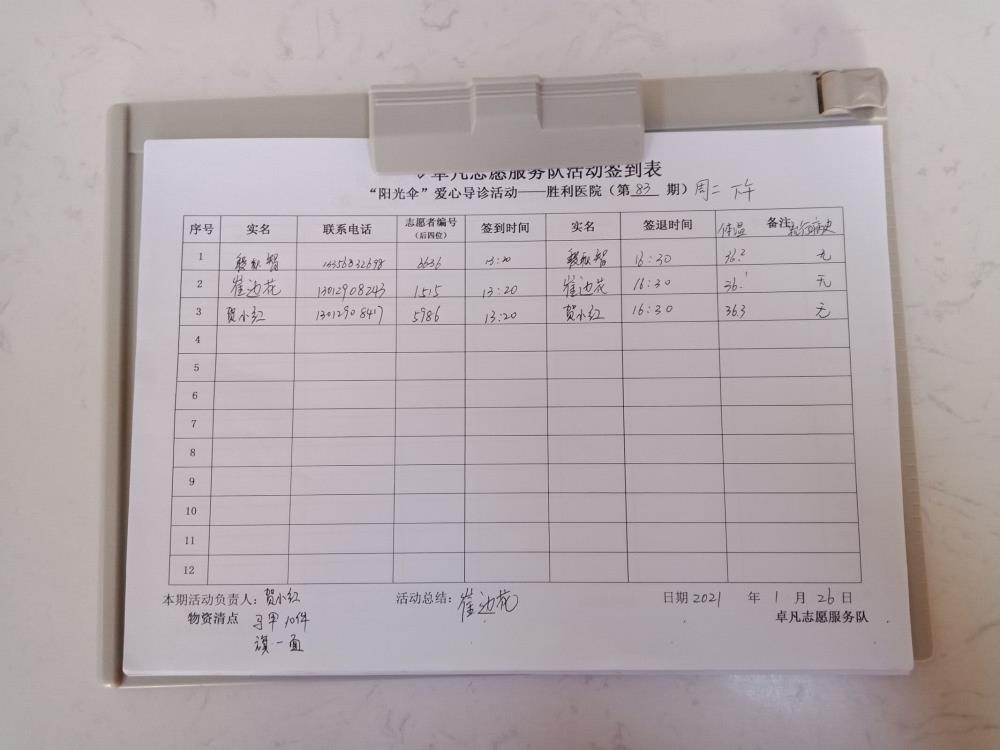 卓凡志愿服务队活动签到表
“阳光伞”爱心导诊活动——胜利医院（第 83 期）周二 下午
序号 实名 联系电话 志愿者编号（后四位） 签到时间 实名 签退时间 体温 备注 流行病史
1 智 6636 智 16:30 36.2 无
2 崔边花 13012908243 1515 13:20 崔边花 16:30 36.1 无
3 贺小红 13012908417 5986 13:20 贺小红 16:30 36.3 无
4
5
6
7
8
9
10
11
12
本期活动负责人：贺小红 活动总结：崔边花 日期 2021 年 1 月 26 日
物资清点 马甲 10件 卓凡志愿服务队
旗一面